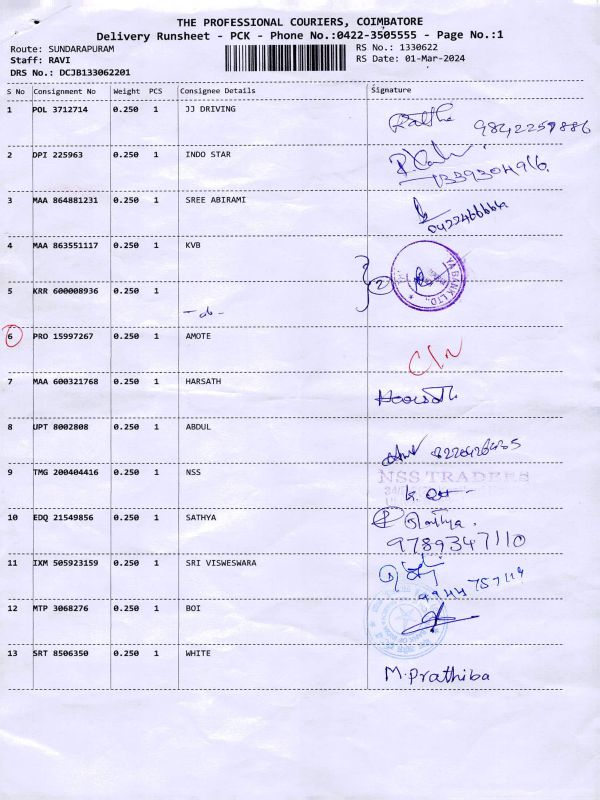 THE PROFESSIONAL COURIERS, COIMBATORE
Delivery Runsheet - PCK - Phone No.:0422-3505555 - Page No.:1
Route: SUNDARAPURAM RS No.: 1330622
Staff: RAVI RS Date: 01-Mar-2024
DRS No.: DCJB133062201
S No Consignment No Weight PCS Consignee Details Signature
1 POL 3712714 0.250 1 JJ DRIVING
9842259886
2 DPI 225963 0.250 1 INDO STAR
3 MAA 864881231 0.250 1 SREE ABIRAMI
4 MAA 863551117 0.250 1 KVB
2
YA BANK LTD.
5 KRR 600008936 0.250 1
-do-
6 PRO 15997267 0.250 1 AMOTE
7 MAA 600321768 0.250 1 HARSATH
8 UPT 8002808 0.250 1 ABDUL
9 TMG 200404416 0.250 1 NSS
NSS TRADERS
10 EDQ 21549856 0.250 1 SATHYA
Sathya.
9789347110
11 IXM 505923159 0.250 1 SRI VISWESWARA
12 MTP 3068276 0.250 1 BOI
13 SRT 8506350 0.250 1 WHITE
M.Prathiba